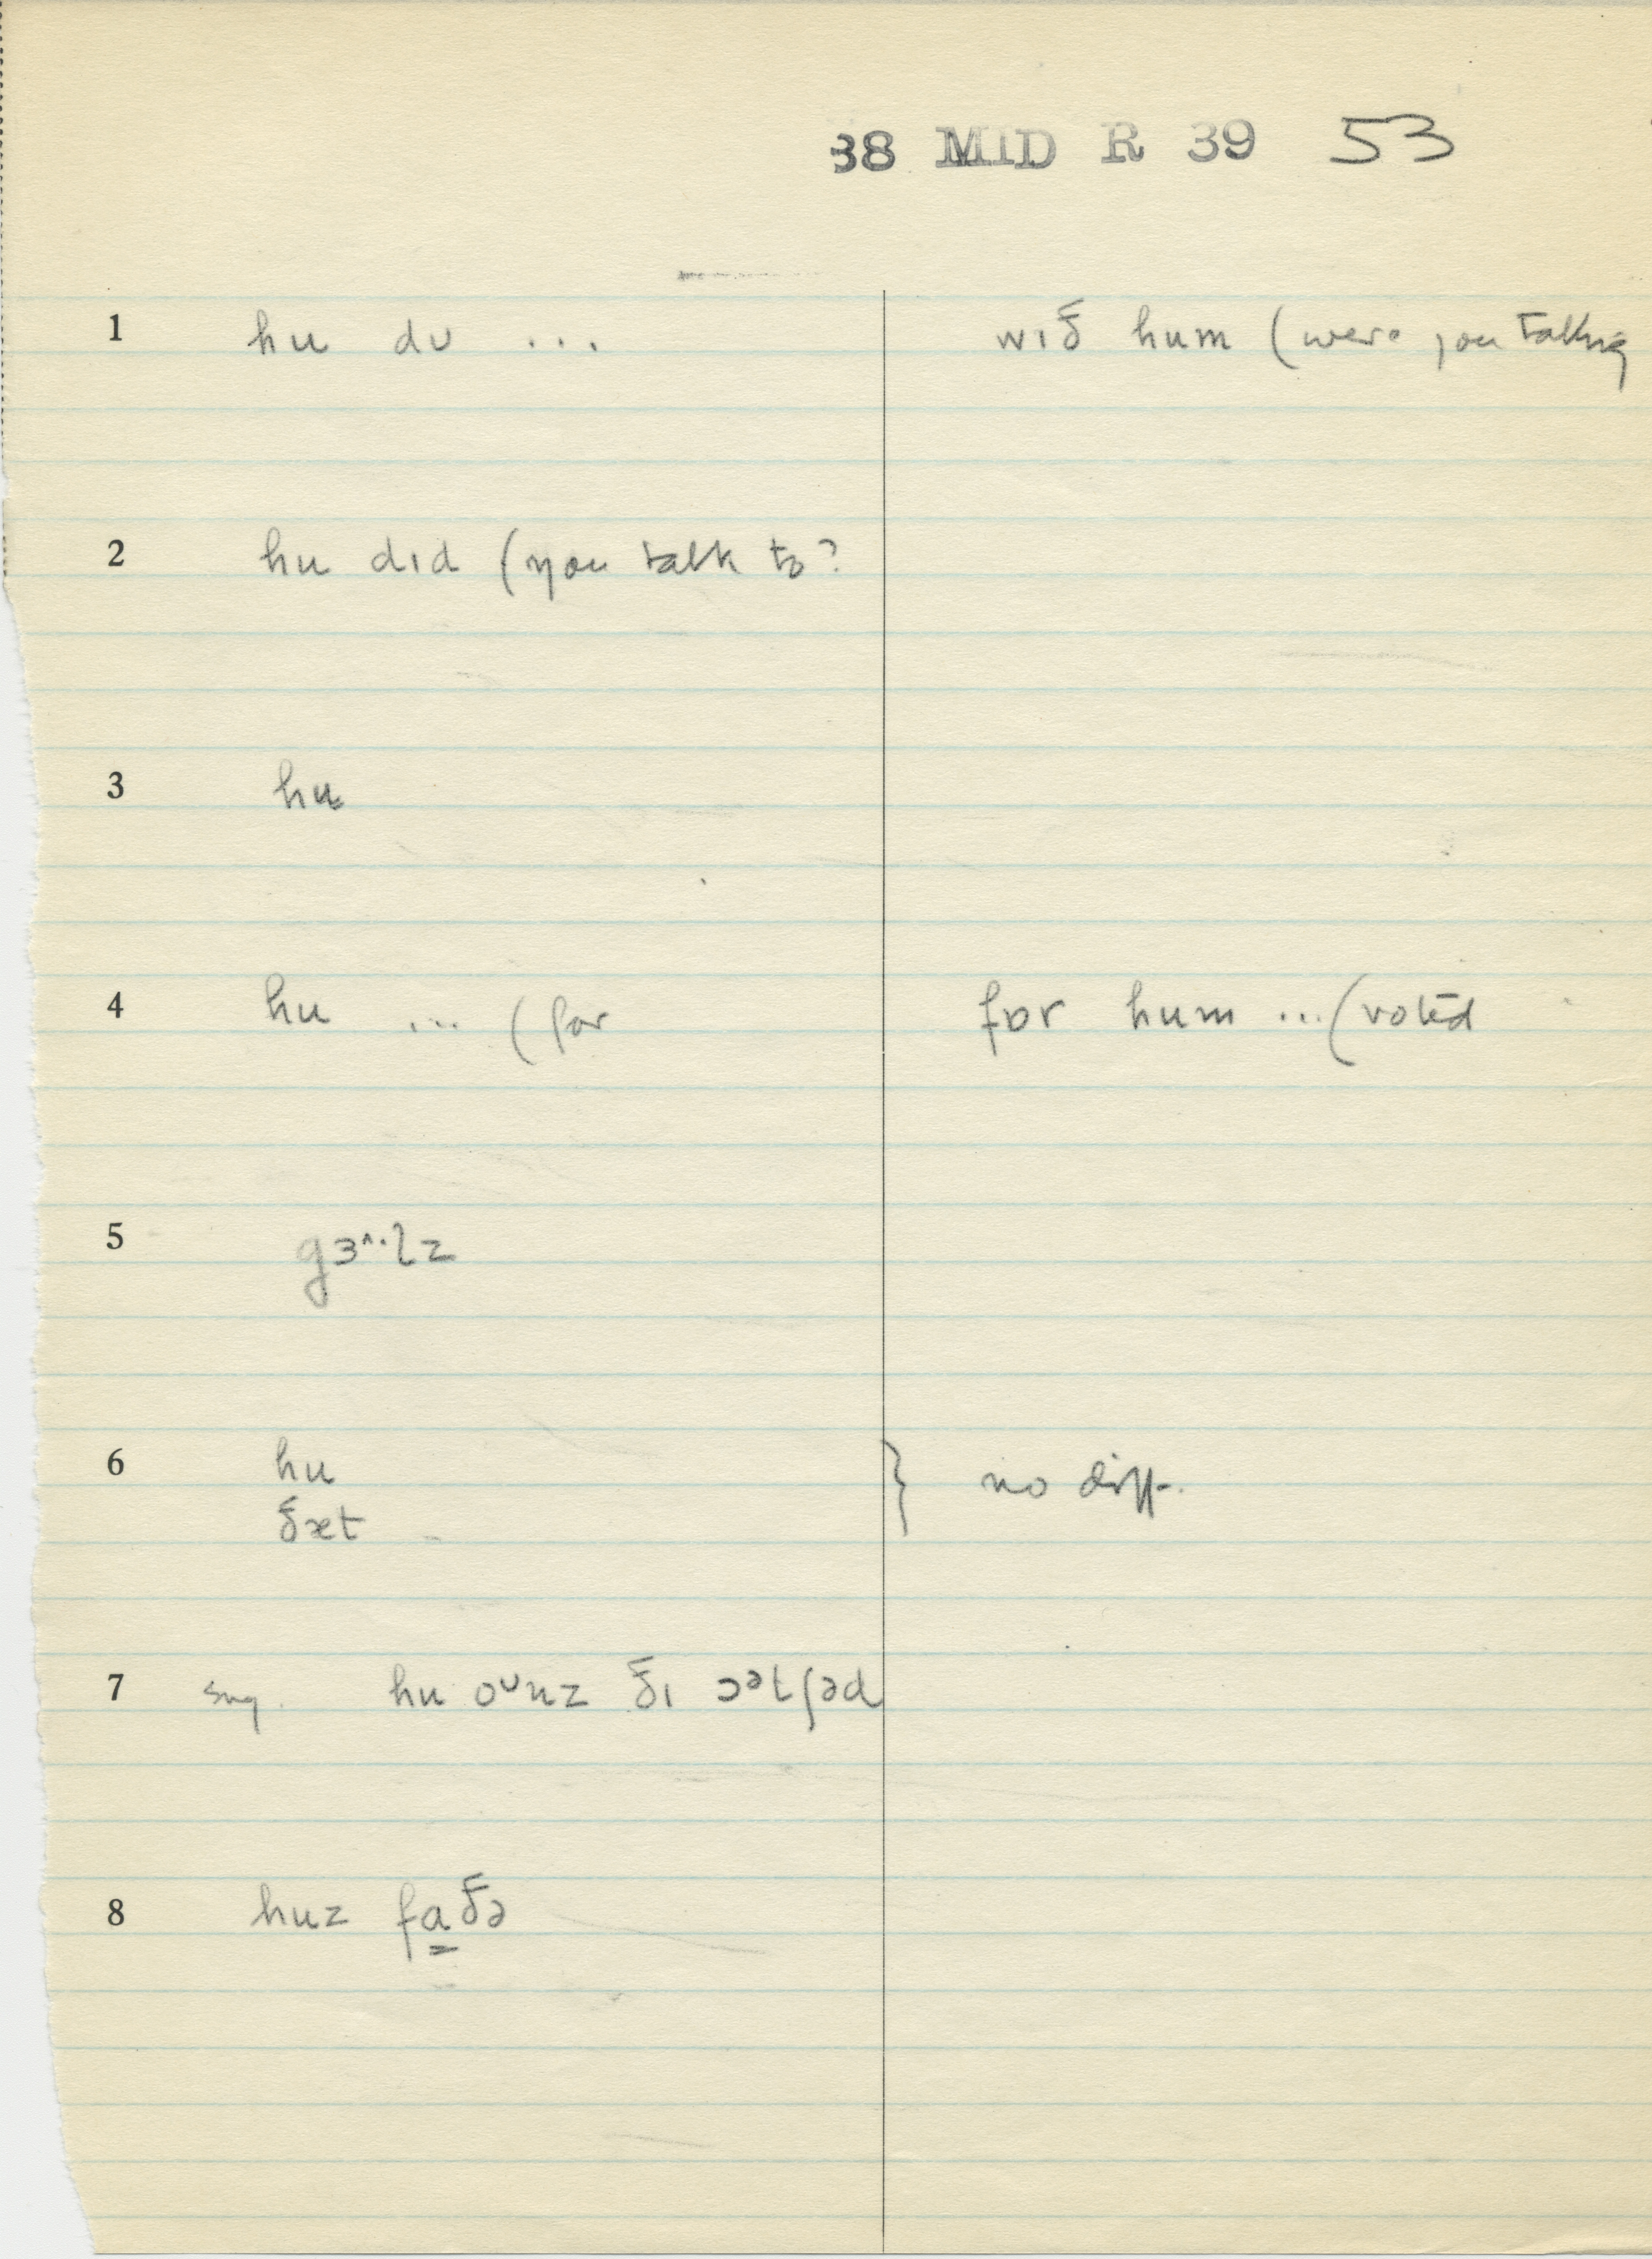 38 MID R 39 53
1 hu dʊ ... wɪð hum (were you talking
2 hu dɪd (you talk to?
3 hu
4 hu ... (for fɒr hum ... (voted
5 gɜ^·lz
6 hu } no diff.
ðæt
7 sug. hu oᶷnz ðɪ ɔᵊtʃəd
8 huz faðə